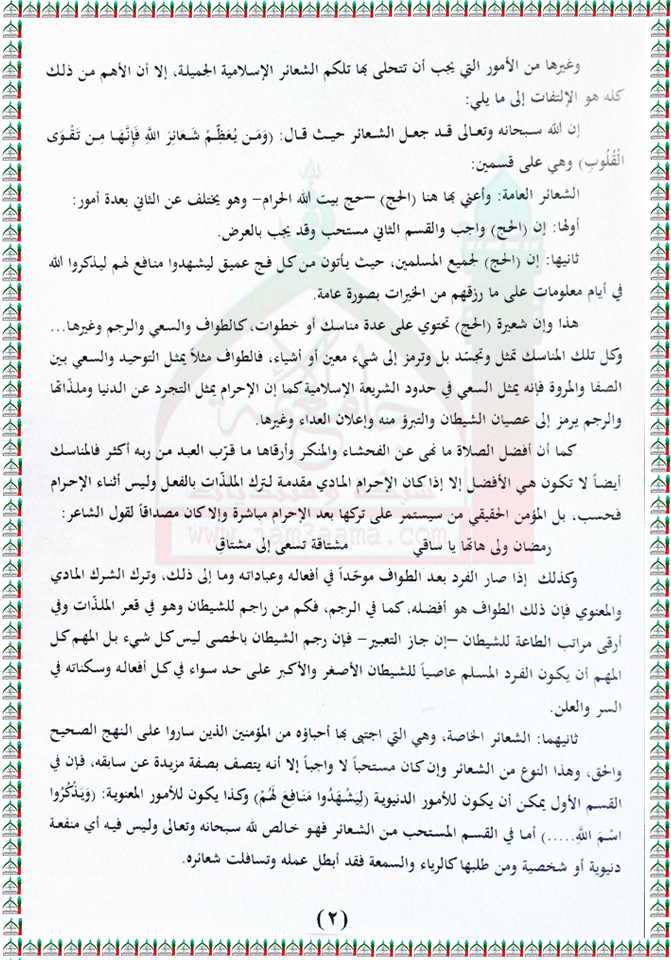 وغيرها من الأمور التي يجب أن تتحلى بها تلكم الشعائر الإسلامية الجميلة، إلا أن الأهم من ذلك
كله هو الإلتفات إلى ما يلي:
إن الله سبحانه وتعالى قد جعل الشعائر حيث قال: (وَمَن يُعَظِّمْ شَعَائِرَ اللَّهِ فَإِنَّهَا مِن تَقْوَى
الْقُلُوبِ) وهي على قسمين:
الشعائر العامة: وأعني بها هنا (الحج) –حج بيت الله الحرام– وهو يختلف عن الثاني بعدة أمور:
أولها: إن (الحج) واجب والقسم الثاني مستحب وقد يجب بالعرض.
ثانيها: إن (الحج) لجميع المسلمين، حيث يأتون من كل فج عميق ليشهدوا منافع لهم ليذكروا الله
في أيام معلومات على ما رزقهم من الخيرات بصورة عامة.
هذا وإن شعيرة (الحج) تحتوي على عدة مناسك أو خطوات، كالطواف والسعي والرجم وغيرها...
وكل تلك المناسك تمثل وتجسّد بل وترمز إلى شيء معين أو أشياء، فالطواف مثلاً يمثل التوحيد والسعي بين
الصفا والمروة فإنه يمثل السعي في حدود الشريعة الإسلامية كما إن الإحرام يمثل التجرد عن الدنيا وملذّاتها
والرجم يرمز إلى عصيان الشيطان والتبرؤ منه وإعلان العداء وغيرها.
كما أن أفضل الصلاة ما نهى عن الفحشاء والمنكر وأرقاها ما قرّب العبد من ربه أكثر فالمناسك
أيضاً لا تكون هي الأفضل إلا إذا كان الإحرام المادي مقدمة لترك الملذّات بالفعل وليس أثناء الإحرام
فحسب، بل المؤمن الحقيقي من سيستمر على تركها بعد الإحرام مباشرة وإلا كان مصداقاً لقول الشاعر:
رمضان ولى هاتها يا ساقي مشتاقة تسعى إلى مشتاقِ
وكذلك إذا صار الفرد بعد الطواف موحّداً في أفعاله وعباداته وما إلى ذلك، وترك الشرك المادي
والمعنوي فإن ذلك الطواف هو أفضله، كما في الرجم، فكم من راجم للشيطان وهو في قعر الملذّات وفي
أرقى مراتب الطاعة للشيطان –إن جاز التعبير– فإن رجم الشيطان بالحصى ليس كل شيء بل المهم كل
المهم أن يكون الفرد المسلم عاصياً للشيطان الأصغر والأكبر على حد سواء في كل أفعاله وسكناته في
السر والعلن.
ثانيهما: الشعائر الخاصة، وهي التي اجتبى بها أحباؤه من المؤمنين الذين ساروا على النهج الصحيح
والحق، وهذا النوع من الشعائر وإن كان مستحباً لا واجباً إلا أنه يتصف بصفة مزيدة عن سابقه، فإن في
القسم الأول يمكن أن يكون للأمور الدنيوية (لِيَشْهَدُوا مَنَافِعَ لَهُمْ) وكذا يكون للأمور المعنوية: (وَيَذْكُرُوا
اسْمَ اللَّهِ.....) أما في القسم المستحب من الشعائر فهو خالص لله سبحانه وتعالى وليس فيه أي منفعة
دنيوية أو شخصية ومن طلبها كالرياء والسمعة فقد أبطل عمله وتسافلت شعائره.
(٢)
جامع
شبكة ومنتديات
www.jam3aama.com